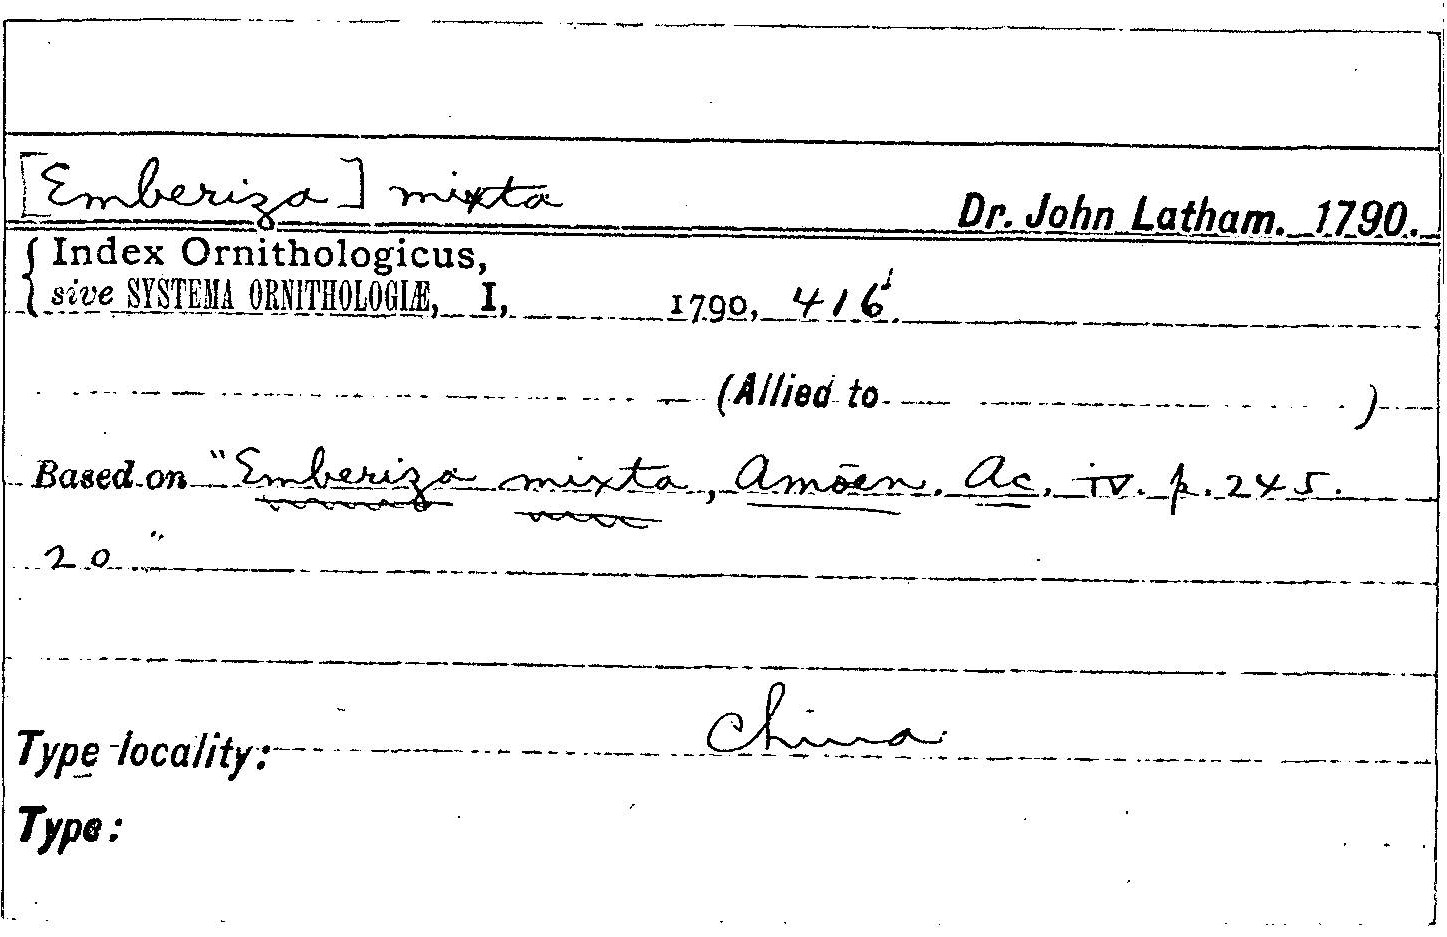 [Emberiza] mixta Dr. John Latham. 1790.
Index Ornithologicus,
sive SYSTEMA ORNITHOLOGIÆ, I, 1790, 416.
(Allied to )
Based on "Emberiza mixta, Amōen. Ac. iv. p. 245.
20"
Type locality: China
Type: